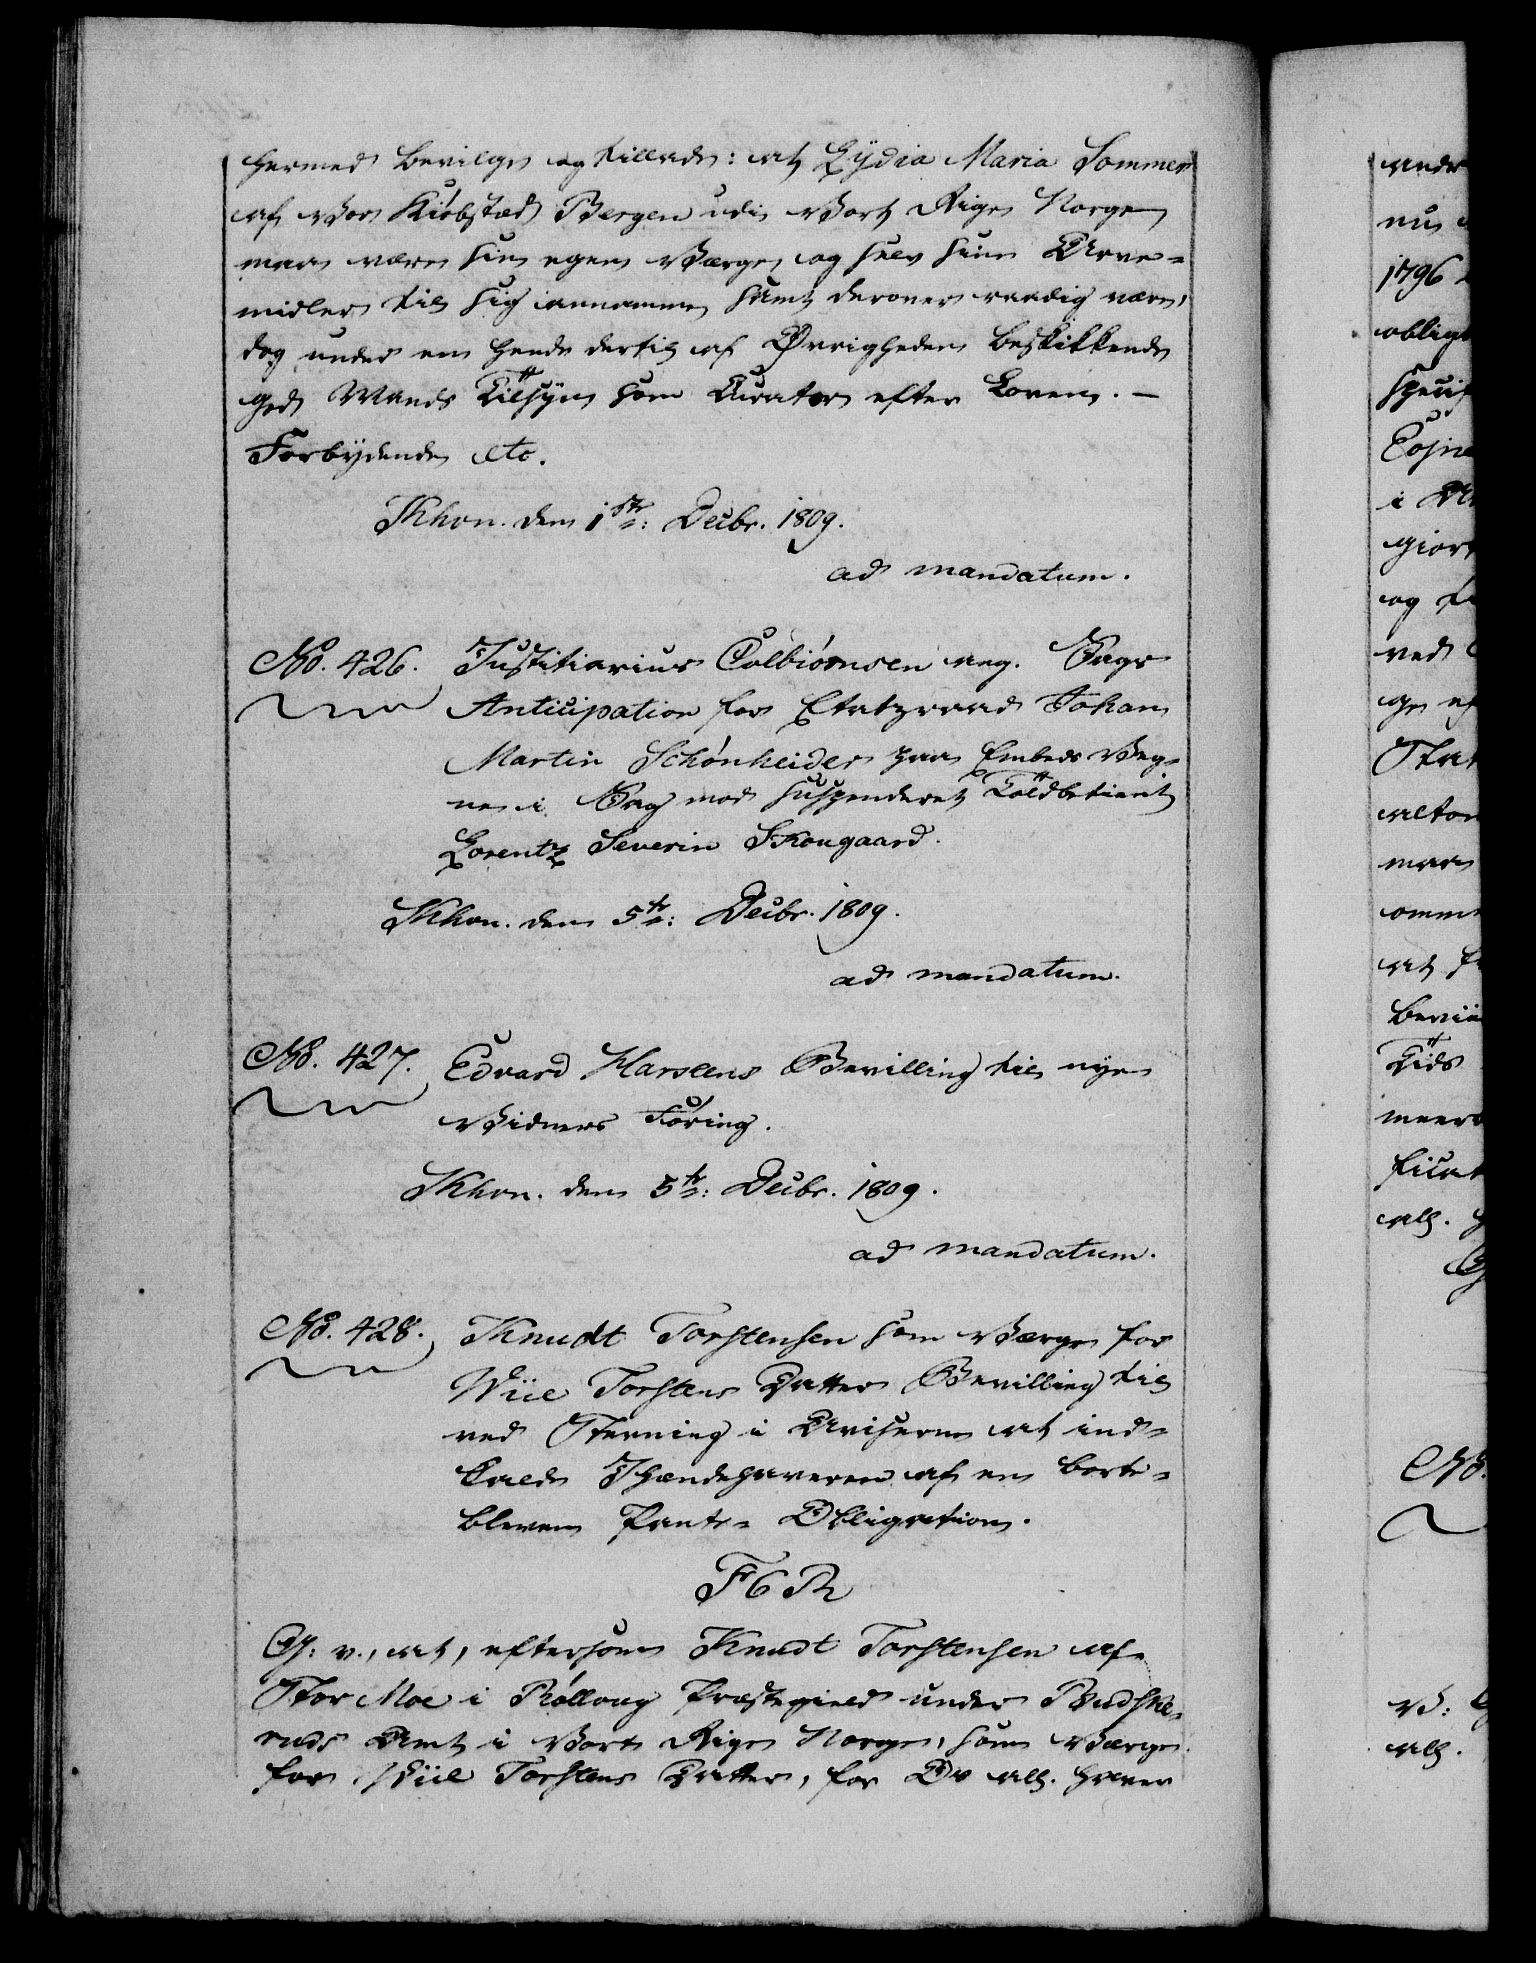 hermed bevilge og tillade: at Lydia Maria Sommer
af Vor Kiøbstæd Bergen udi Vort Rige Norge
maa være sin egen Værge, og selv sine Arve=
midler til sig annamme samt derover raadig være,
dog under en hende dertil af Øvrigheden beskikkende
god Mands Tilsyn som Curator efter Loven. –
Forbydende etc.
Khvn. den 1ste: Decbr. 1809.
ad mandatum.
No. 426. Justitiarius Colbiørnsen ang. Sags
Anticipation for Etatzraad Johan
Martin Schønheider paa Embeds Veg=
ne i Sag mod suspenderet Toldbetient
Lorentz Severin Skougaard.
Khvn. den 5te: Decbr. 1809.
ad mandatum.
No. 427. Edvard Harslens Bevilling til nye
Vidners Føring.
Khvn. den 5te: Decbr. 1809.
ad mandatum.
No. 428. Knudt Torstensen som Værge for
Wiie Torstens Datter Bevilling til
ved Stevning i Aviserne at ind=
kalde Ihændehaveren af en bort=
bleven Pante= Obligation.
F6R
G: v., at, eftersom Knudt Torstensen af
Stor Moe i Rølloug Præstegield under Budske=
ruds Amt i Vort Rige Norge, som Værge
for Wiie Torstens Datter, for Os all. haver
1796
No.